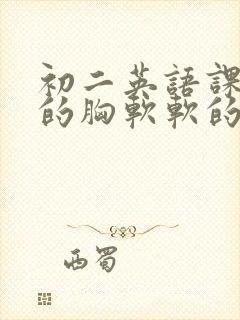 初二英語課
的胸軟軟的
西蜀